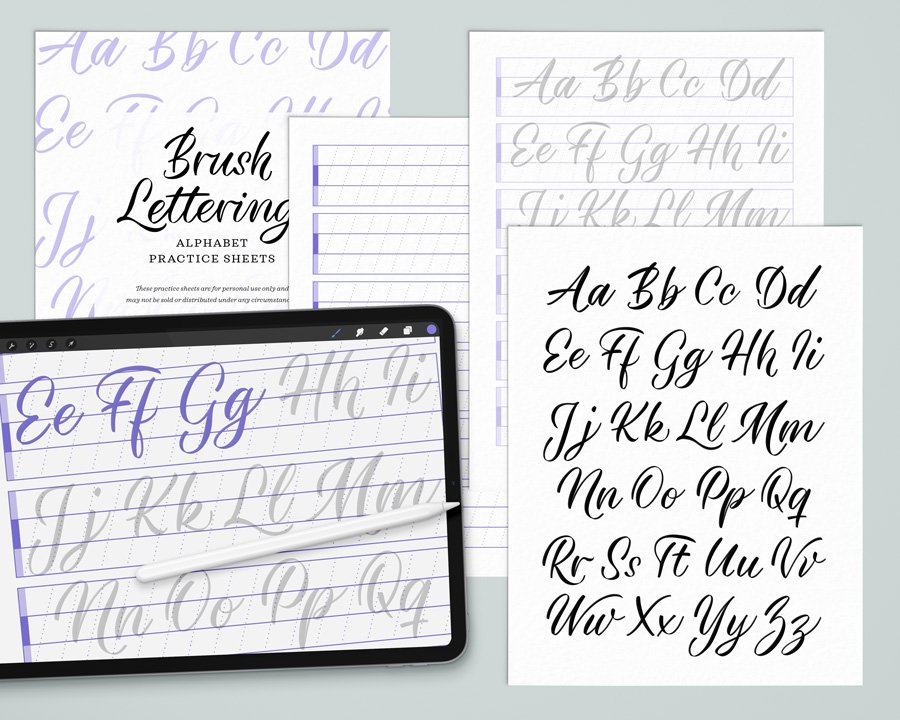 Aa Bb Cc Dd
Ee
Jj
Brush
Lettering
ALPHABET
PRACTICE SHEETS
These practice sheets are for personal use only and
may not be sold or distributed under any
Aa Bb Cc Dd
Ee Ff Gg Hh Ii
Jj Kk Ll Mm
Ee Ff Gg Hh Ii
Jj Kk Ll Mm
Nn Oo Pp Qq
Aa Bb Cc Dd
Ee Ff Gg Hh Ii
Jj Kk Ll Mm
Nn Oo Pp Qq
Rr Ss Tt Uu Vv
Ww Xx Yy Zz